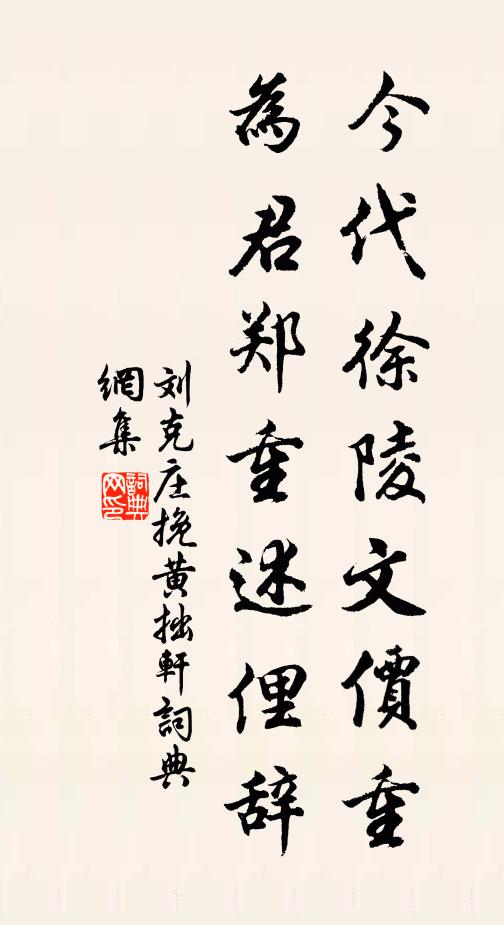 今代徐陵文價重
為君郑重述俚辞
刘克庄挽黄拙軒詞典
網集
詞典网印